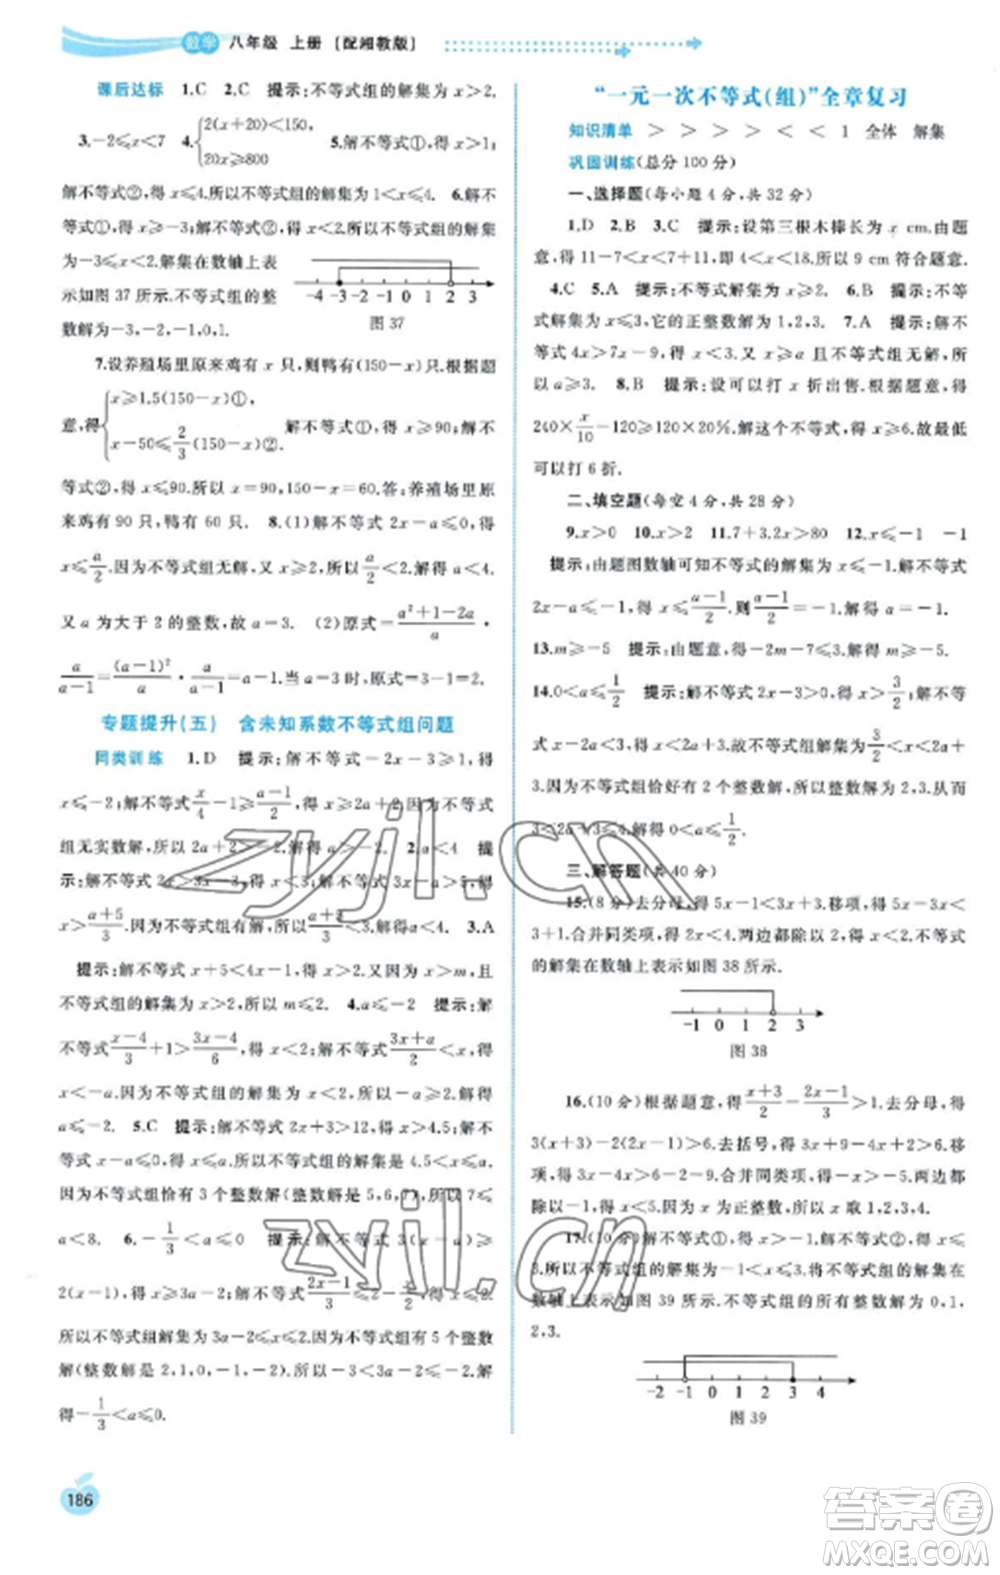 数学 八年级 上册 [配湘教版]
课后达标 1.C 2.C 提示:不等式组的解集为 x>2.
3.-2≤x<7 4.{2(x+20)<150, 20x≥800 5.解不等式①,得 x>1;
解不等式②,得 x≤4.所以不等式组的解集为 1<x≤4. 6.解
不等式①,得 x≥-3;解不等式②,得 x<2.所以不等式组的解集为
-3≤x<2.解集在数轴上表
示如图 37 所示.不等式组的整
数解为-3,-2,-1,0,1.
-4 -3 -2 -1 0 1 2 3
图 37
7.设养殖场里原来鸡有 x 只,则鸭有(150-x)只.根据题
意,得{x≥1.5(150-x)①, x-50≤2/3(150-x)②. 解不等式①,得 x≥90;解不
等式②,得 x≤90.所以 x=90,150-x=60.答:养殖场里原
来鸡有 90 只,鸭有 60 只. 8.(1)解不等式 2x-a≤0,得
x≤a/2.因为不等式组无解,所以 a/2<2.解得 a<4.
又 a 为大于 2 的整数,故 a=3. (2)原式=(a²+1-2a)/a·
a/(a-1)=(a-1)²/a·a/(a-1)=a-1.当 a=3 时,原式=2.
专题提升(五) 含未知系数不等式组问题
同类训练 1.D 提示:解不等式-2x-3≥1,得
x≤-2;解不等式 x/4-1≥(a-1)/2,得 x≥2a+2.因为不等式
组无实数解,所以 2a+2>-2.解得 a>-2. 2.a<4 提
示:解不等式 2x>3x-3,得 x<3;解不等式 3x-a>5,得
x>(a+5)/3.因为不等式组有实数解,所以(a+5)/3<3.解得 a<4. 3.A
提示:解不等式 x+5<4x-1,得 x>2.因为 x>m,且
不等式组的解集为 x>2,所以 m≤2. 4.a≤-2 提示:解
不等式(x-4)/3+1>(3x-4)/6,得 x<2;解不等式(3x+a)/2<x,得
x<-a.因为不等式组的解集为 x<2,所以-a≥2.解得
a≤-2. 5.C 提示:解不等式 2x+3>12,得 x>4.5;解不
等式 x-a≤0,得 x≤a.所以不等式组的解集是 4.5<x≤a.
因为不等式组恰好有 3 个整数解(整数解是 5,6,7),所以 7≤
a<8. 6.-1/3<a≤0 提示:解不等式 3(x-a)≥
2(x-1),得 x≥3a-2;解不等式(2x-1)/3≤(2-x)/2,得 x≤2.
所以不等式组的解集为 3a-2≤x≤2.因为不等式组有 5 个整数
解(整数解是 2,1,0,-1,-2),所以-3<3a-2≤-2.解
得-1/3<a≤0.
186
“一元一次不等式(组)”全章复习
知识清单 > > > > < < 1 全体 解集
巩固训练(总分 100 分)
一、选择题(每小题 4 分,共 32 分)
1.D 2.B 3.C 提示:设第三根木棒长为 x cm.由题
意,得 11-7<x<11+7,即 4<x<18.所以 9 cm符合题意.
4.C 5.A 提示:不等式解集为 x≥2. 6.B 提示:不等
式解集为 x≤3,它的正整数解为 1,2,3. 7.A 提示:解不
等式 4x>7x-9,得 x<3.因为 x>a 且不等式组无解,所
以 a≥3. 8.B 提示:设可以打 x 折出售.根据题意,得
240×x/10-120≥120×20%.解这个不等式,得 x≥6.故最低
可以打 6 折.
二、填空题(每空 4 分,共 28 分)
9.x>0 10.x>2 11.7+3.2x>80 12.x≤-1 -1
提示:由题图数轴可知不等式的解集为 x≤-1.解不等式
2x-a≤-1,得 x≤(a-1)/2.则(a-1)/2=-1.解得 a=-1.
13.m≥-5 提示:由题意,得-2m-7≤3.解得 m≥-5.
14.0<a≤1/2 提示:解不等式 2x-3>0,得 x>3/2;解不等
式 x-2a≤3,得 x≤2a+3.故不等式组解集为 3/2<x≤2a+
3.因为不等式组恰好有 2 个整数解,所以整数解为 2,3.所以
3<2a+3≤4.解得 0<a≤1/2.
三、解答题(共 40 分)
15.(8 分)去分母,得 5x-1<3x+3.移项,得 5x-3x<
3+1.合并同类项,得 2x<4.两边都除以 2,得 x<2.不等式
的解集在数轴上表示如图 38 所示.
-1 0 1 2 3
图 38
16.(10 分)根据题意,得(x+3)/2-(2x-1)/3>1.去分母,得
3(x+3)-2(2x-1)>6.去括号,得 3x+9-4x+2>6.移
项,得 3x-4x>6-2-9.合并同类项,得-x>-5.两边都
除以-1,得 x<5.因为 x 为正整数,所以 x 为 1,2,3,4.
17.(10 分)解不等式①,得 x>-1;解不等式②,得 x≤
3.所以不等式组的解集为-1<x≤3.所以不等式组的解集在
数轴上表示如图 39 所示.不等式组的所有整数解为 0,1,
2,3.
-2 -1 0 1 2 3 4
图 39
zyjl.cn
zyjl.cn
答案卷
MXQE.COM